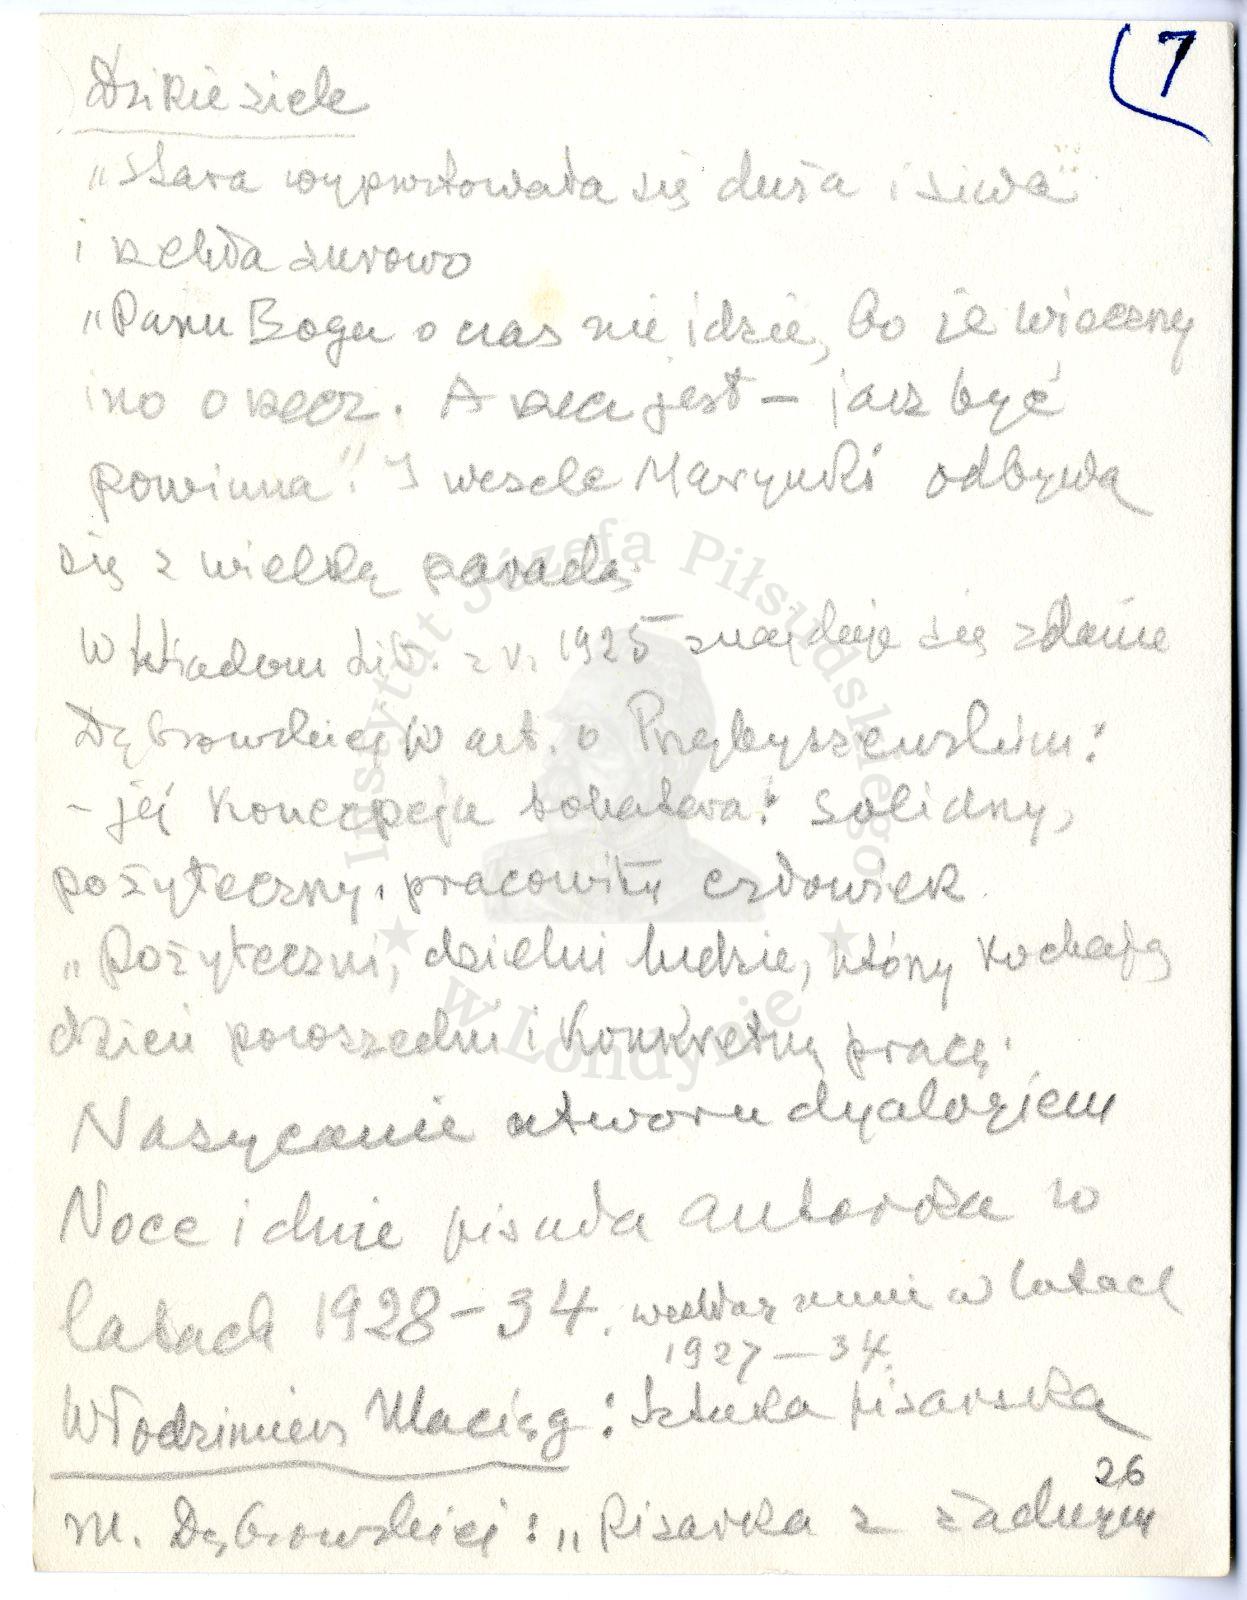 7
Dzikie ziele
"Stara wyprostowała się duża i siwa"
i rzekła surowo
"Panu Bogu o nas nie idzie, bo je wieczny
ino o rzecz. A rzecz jest – jak być
powinna". I wesele Marynki odbywa
się z wielką paradą.
W Wiadom Lit. z r. 1925 znajduje się zdanie
Dąbrowskiej w art. o Przybyszewskim:
– jej koncepcja bohatera: solidny,
pożyteczny, pracowity człowiek.
"Pożyteczni, dzielni ludzie, którzy kochają
dzień powszedni i konkretną pracę.
Nasycenie utworu dyalogiem
Noce i dnie pisała autorka w
latach 1928–34. wedłuz mnie w latach
1927–34.
Włodzimierz Maciąg: Sztuka pisarska
26
M. Dąbrowskiej: "Pisarka z żadnym
Instytut Józefa Piłsudskiego
w Londynie